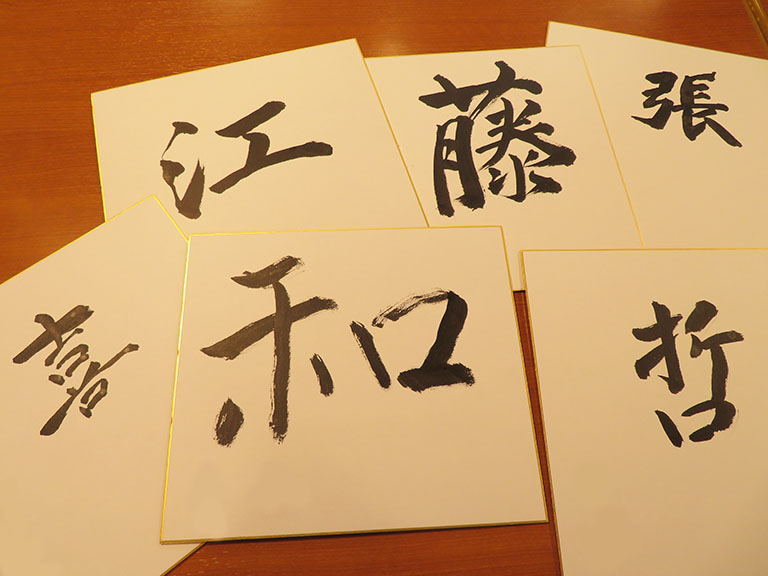 江
藤
張
喜
和
哲